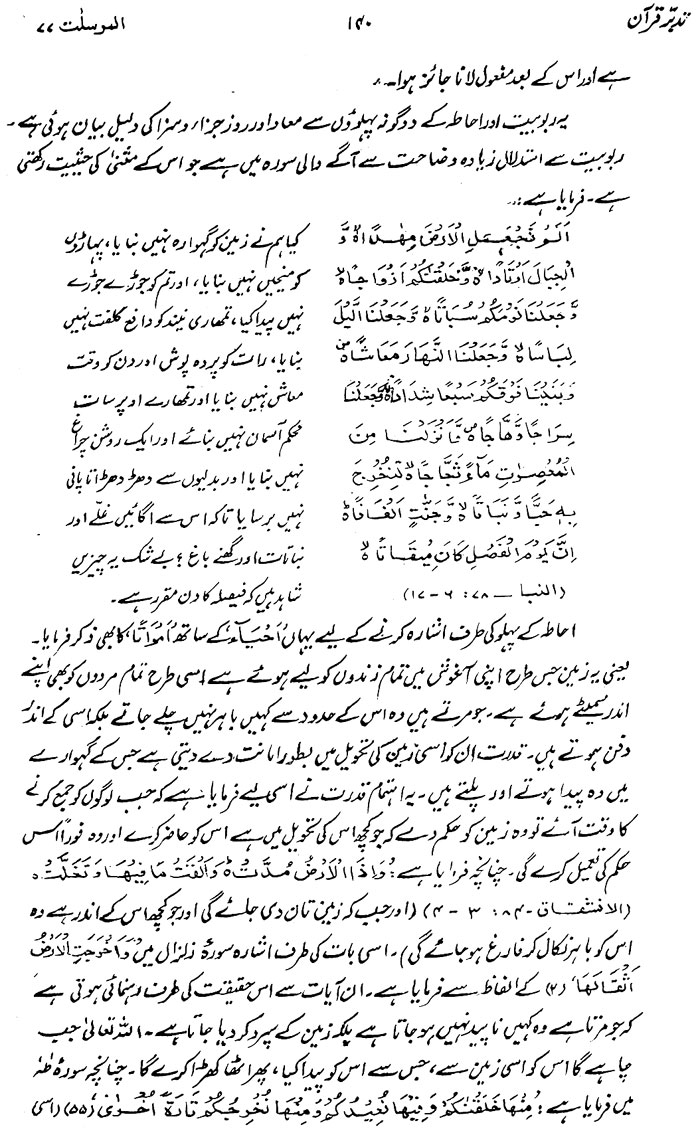 تدبرِ قرآن ۱۴۰ المرسلٰت ۷۷
ہے اور اس کے بعد مفعول لانا جائز ہوا۔
یہ ربوبیت اور احاطہ کے دوگونہ پہلوؤں سے معاد اور روز جزاء و سزا کی دلیل بیان ہوئی ہے۔
ربوبیت سے استدلال زیادہ وضاحت سے آگے والی سورہ میں ہے جو اس کے مثنیٰ کی حیثیت رکھتی
ہے۔ فرمایا ہے:۔
اَلَمْ نَجْعَلِ الْاَرْضَ مِهٰدًا ۙ وَّ
الْجِبَالَ اَوْتَادًا ۙ وَّخَلَقْنٰكُمْ اَزْوَاجًا ۙ
وَّجَعَلْنَا نَوْمَكُمْ سُبَاتًا ۙ وَّجَعَلْنَا الَّيْلَ
لِبَاسًا ۙ وَّجَعَلْنَا النَّهَارَ مَعَاشًا ۪
وَبَنَيْنَا فَوْقَكُمْ سَبْعًا شِدَادًا ۙ وَّجَعَلْنَا
سِرَاجًا وَّهَّاجًا ۪ وَّاَنْزَلْنَا مِنَ
الْمُعْصِرٰتِ مَآءً ثَجَّاجًا ۙ لِّنُخْرِجَ
بِهٖ حَبًّا وَّنَبَاتًا ۙ وَّجَنّٰتٍ اَلْفَافًا ؕ
اِنَّ يَوْمَ الْفَصْلِ كَانَ مِيْقَاتًا ۙ
(النبا ـ ۷۸: ۶-۱۷)
کیا ہم نے زمین کو گہوارہ نہیں بنایا، پہاڑوں
کو میخیں نہیں بنایا، اور تم کو جوڑے جوڑے
نہیں پیدا کیا، تمھاری نیند کو دافع کلفت نہیں
بنایا، رات کو پردہ پوش اور دن کو وقت
معاش نہیں بنایا اور تمھارے اوپر سات
محکم آسمان نہیں بنائے اور ایک روشن چراغ
نہیں بنایا اور بدلیوں سے دھڑ دھڑاتا پانی
نہیں برسایا تاکہ اس سے اگائیں غلے اور
نباتات اور گھنے باغ؟ بے شک یہ چیزیں
شاہد ہیں کہ فیصلہ کا دن مقرر ہے۔
احاطہ کے پہلو کی طرف اشارہ کرنے کے لیے یہاں 'اَحْيَآءً' کے ساتھ 'اَمْوَاتًا' کا بھی ذکر فرمایا۔
یعنی یہ زمین جس طرح اپنی آغوش میں تمام زندوں کو لیے ہوئے ہے اسی طرح تمام مردوں کو بھی اپنے
اندر سمیٹے ہوئے ہے۔ جو مرتے ہیں وہ اس کے حدود سے کہیں باہر نہیں چلے جاتے بلکہ اسی کے اندر
دفن ہوتے ہیں۔ قدرت ان کو اسی زمین کی تحویل میں بطور امانت دے دیتی ہے جس کے گہوارے
میں وہ پیدا ہوتے اور پلتے ہیں۔ یہ اہتمام قدرت نے اسی لیے فرمایا ہے کہ جب لوگوں کو جمع کرنے
کا وقت آئے تو وہ زمین کو حکم دے کہ جو کچھ اس کی تحویل میں ہے اس کو حاضر کرے اور وہ فوراً اس
حکم کی تعمیل کرے گی۔ چنانچہ فرمایا ہے: وَاِذَا الْاَرْضُ مُدَّتْ ۙ وَاَلْقَتْ مَا فِيْهَا وَتَخَلَّتْ ۙ
(الانشقاق ـ ۸۴: ۳-۴) (اور جب کہ زمین تان دی جائے گی اور جو کچھ اس کے اندر ہے وہ
اس کو باہر نکال کر فارغ ہو جائے گی)۔ اسی بات کی طرف اشارہ سورۂ زلزال میں 'وَاَخْرَجَتِ الْاَرْضُ
اَثْقَالَهَا' (۲) کے الفاظ سے فرمایا ہے۔ ان آیات سے اس حقیقت کی طرف رہنمائی ہوتی ہے
کہ جو مرتا ہے وہ کہیں ناپید نہیں ہو جاتا ہے بلکہ زمین کے سپرد کر دیا جاتا ہے۔ اللہ تعالیٰ جب
چاہے گا اس کو اسی زمین سے، جس سے اس کو پیدا کیا، پھر اٹھا کھڑا کرے گا۔ چنانچہ سورۂ طٰہٰ
میں فرمایا ہے: مِنْهَا خَلَقْنٰكُمْ وَفِيْهَا نُعِيْدُكُمْ وَمِنْهَا نُخْرِجُكُمْ تَارَةً اُخْرٰى (۵۵) (اسی